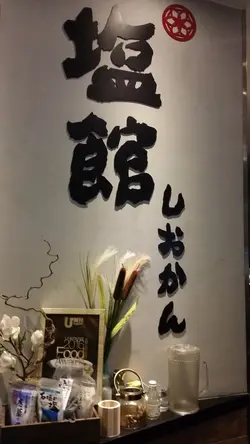 塩館
しおかん
Food